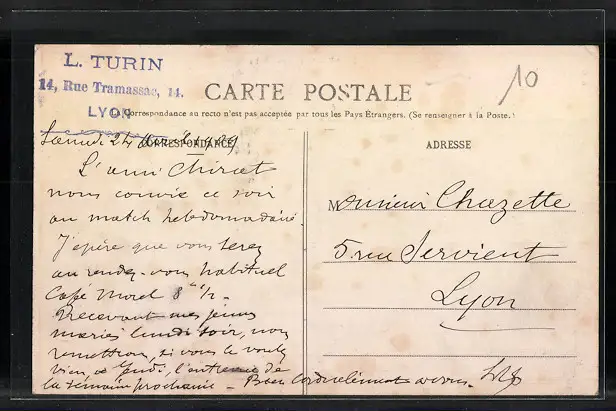 L. TURIN
14, Rue Tramassac, 14.
LYON
10
CARTE POSTALE
La Correspondance au recto n'est pas acceptée par tous les Pays Etrangers. (Se renseigner à la Poste.)
CORRESPONDANCE
Samedi 24
L'ami Chirat
nous convie ce soir
au match hebdomadaire
J'espère que vous serez
au rendez-vous habituel
Café Morel 8 h 1/2 -
Recevant mes jeunes
mariés lundi soir, nous
remettrons, si vous le voulez
bien, à Jeudi, l'entrevue de
la semaine prochaine - Bien cordialement à vous.
ADRESSE
Monsieur Chazette
5 rue Servient
Lyon